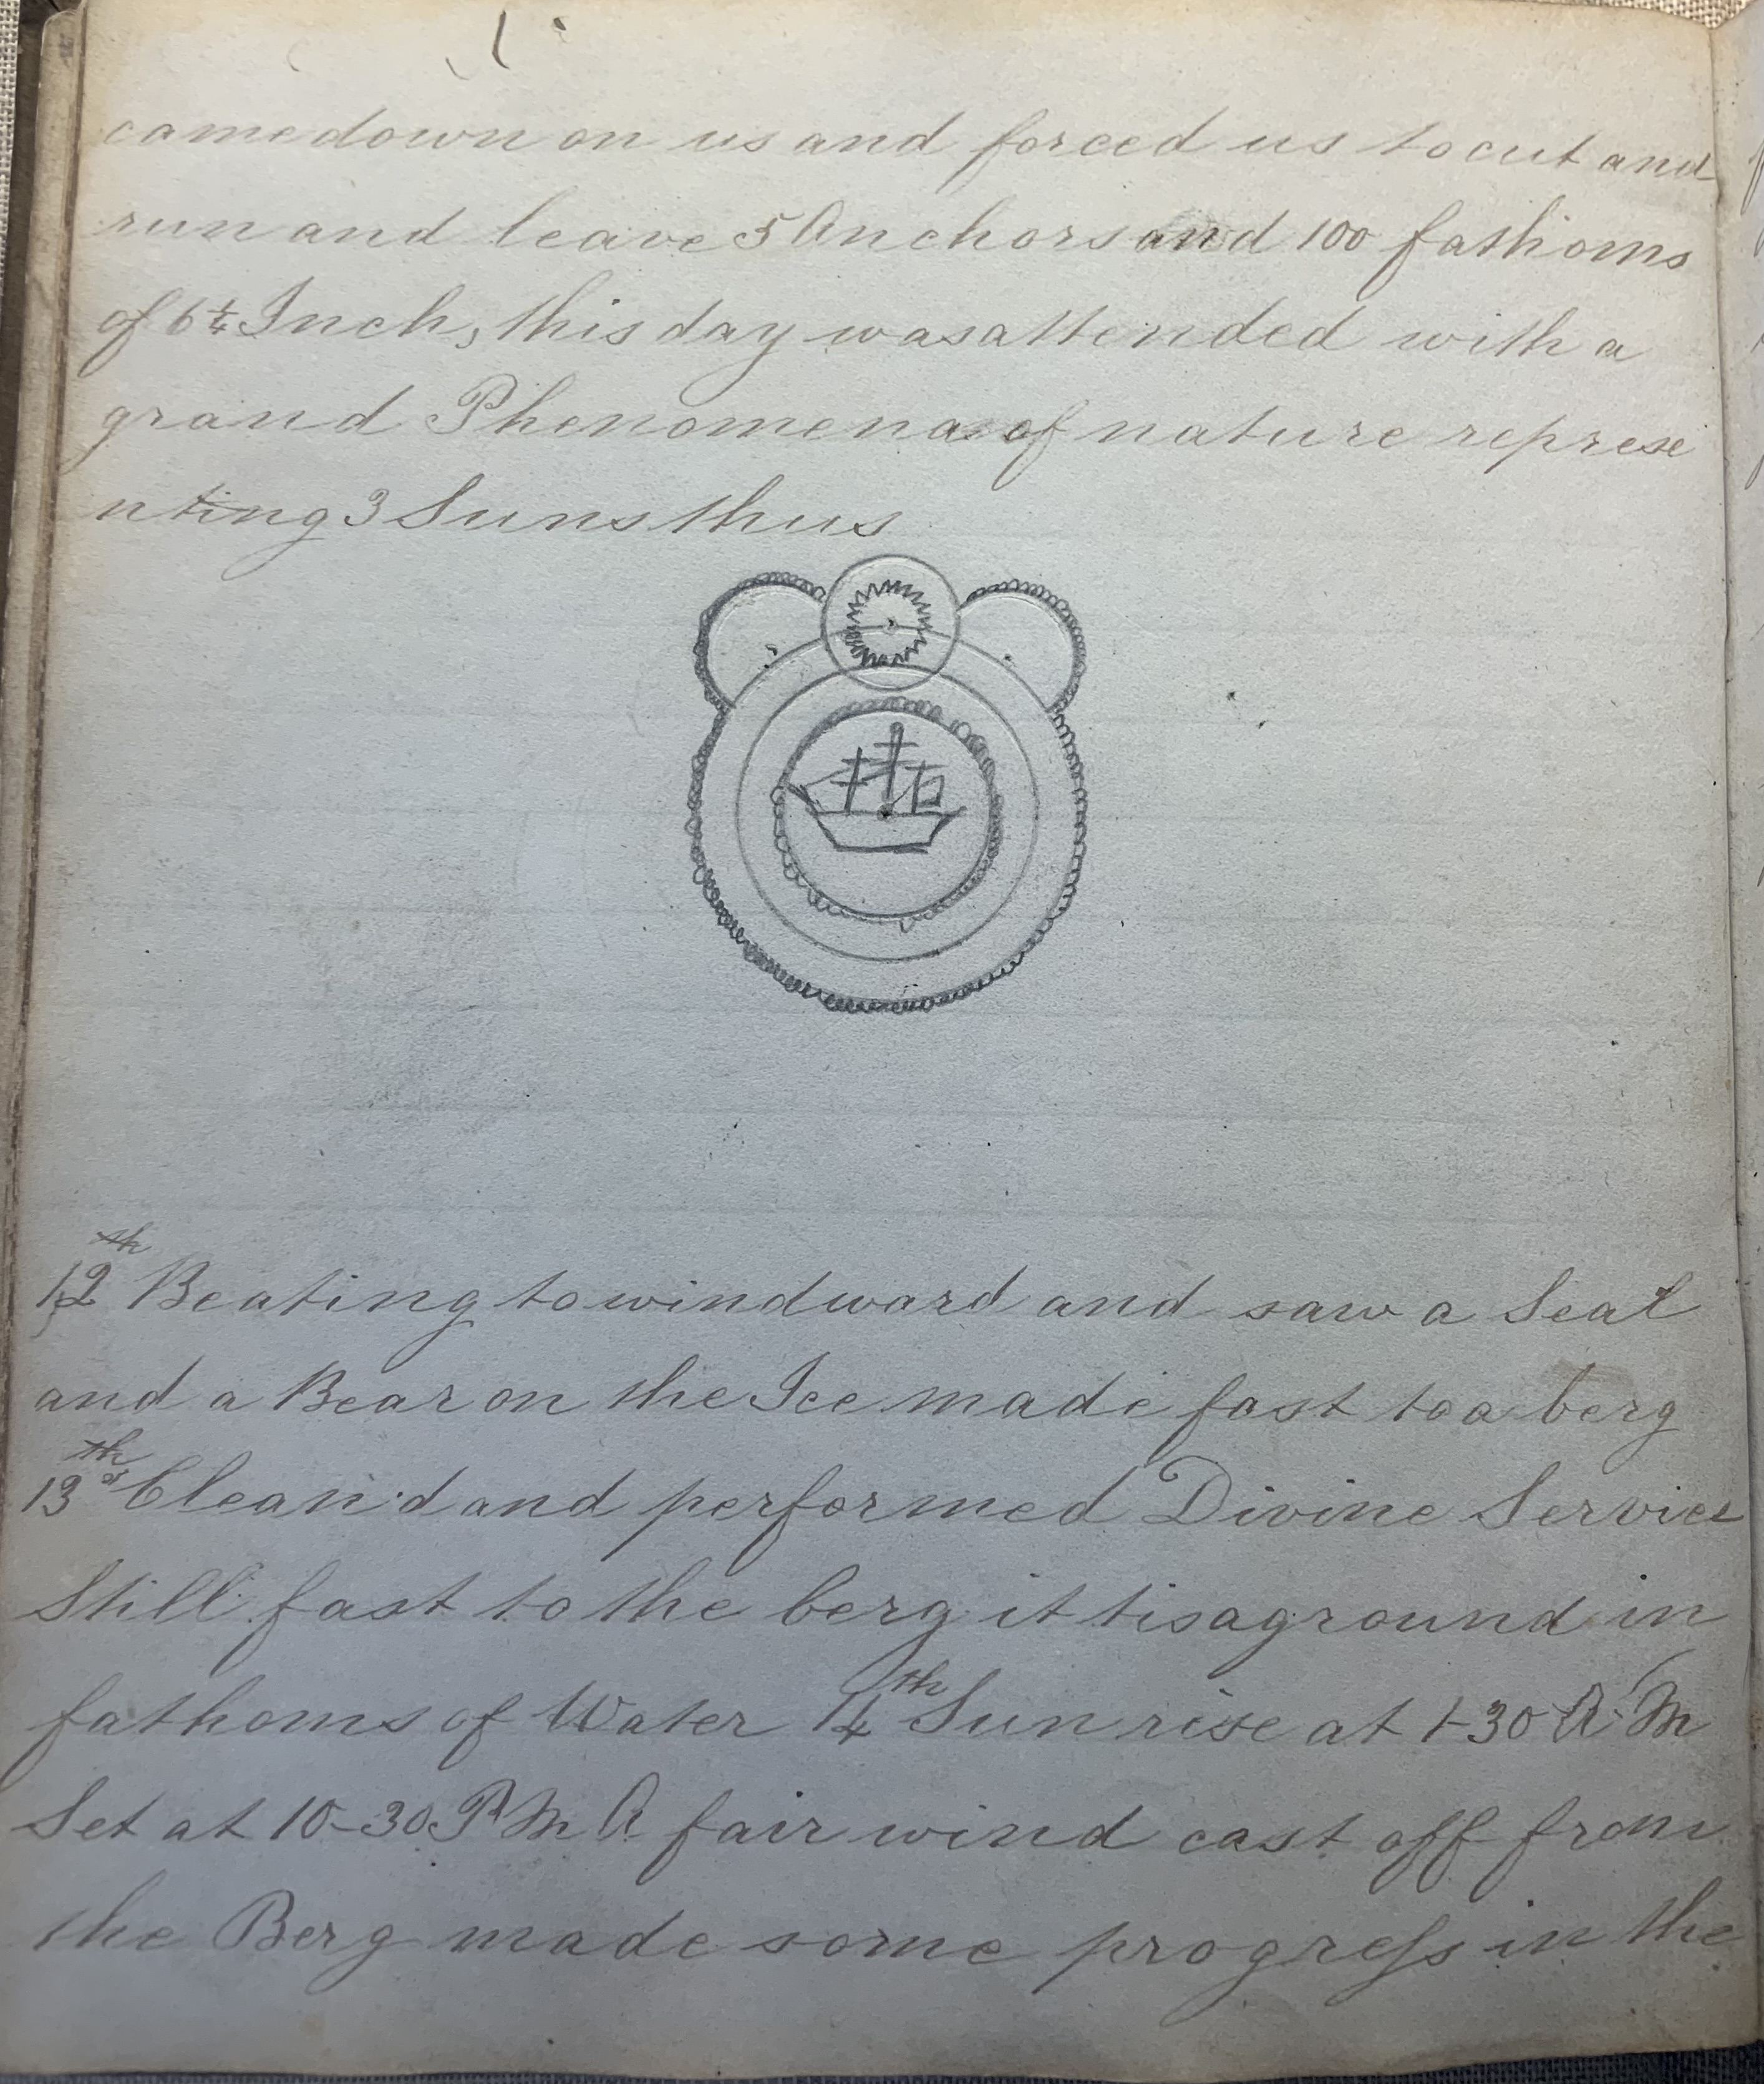 came down on us and forced us to cut and
run and leave 5 Anchors and 100 fathoms
of 6 1/4 Inch, this day was attended with a
grand Phenomena of nature represe
nting 3 Suns thus
12th Beating to windward and saw a Seal
and a Bear on the Ice made fast to a berg
13th Clean'd and performed Divine Service
Still fast to the berg it tis aground in
fathoms of Water 14th Sun rise at 1-30 A.M
Set at 10-30 P.M A fair wind cast off from
the Berg made some progress in the